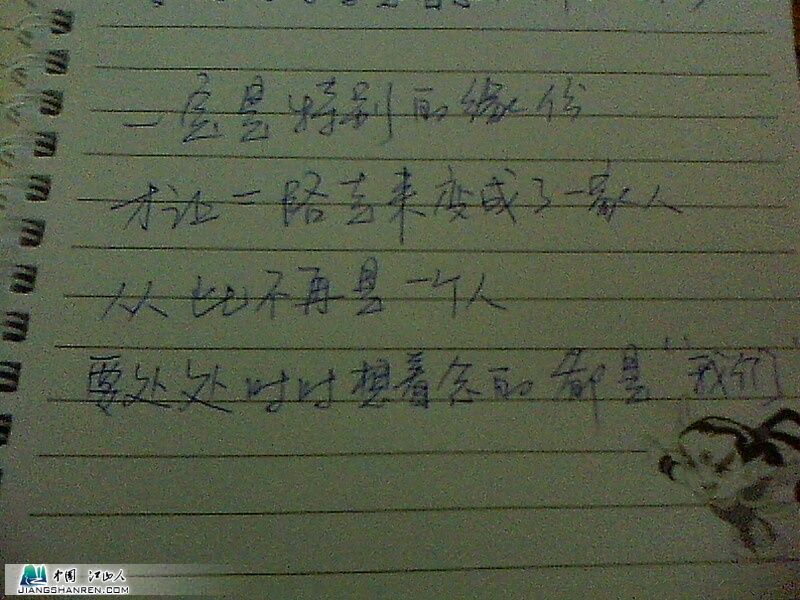 一定是特别的缘份
才让一路走来变成了一家人
从此不再是一个人
要处处时时想着念的都是“我们”
中国 江山人
JIANGSHANREN.COM